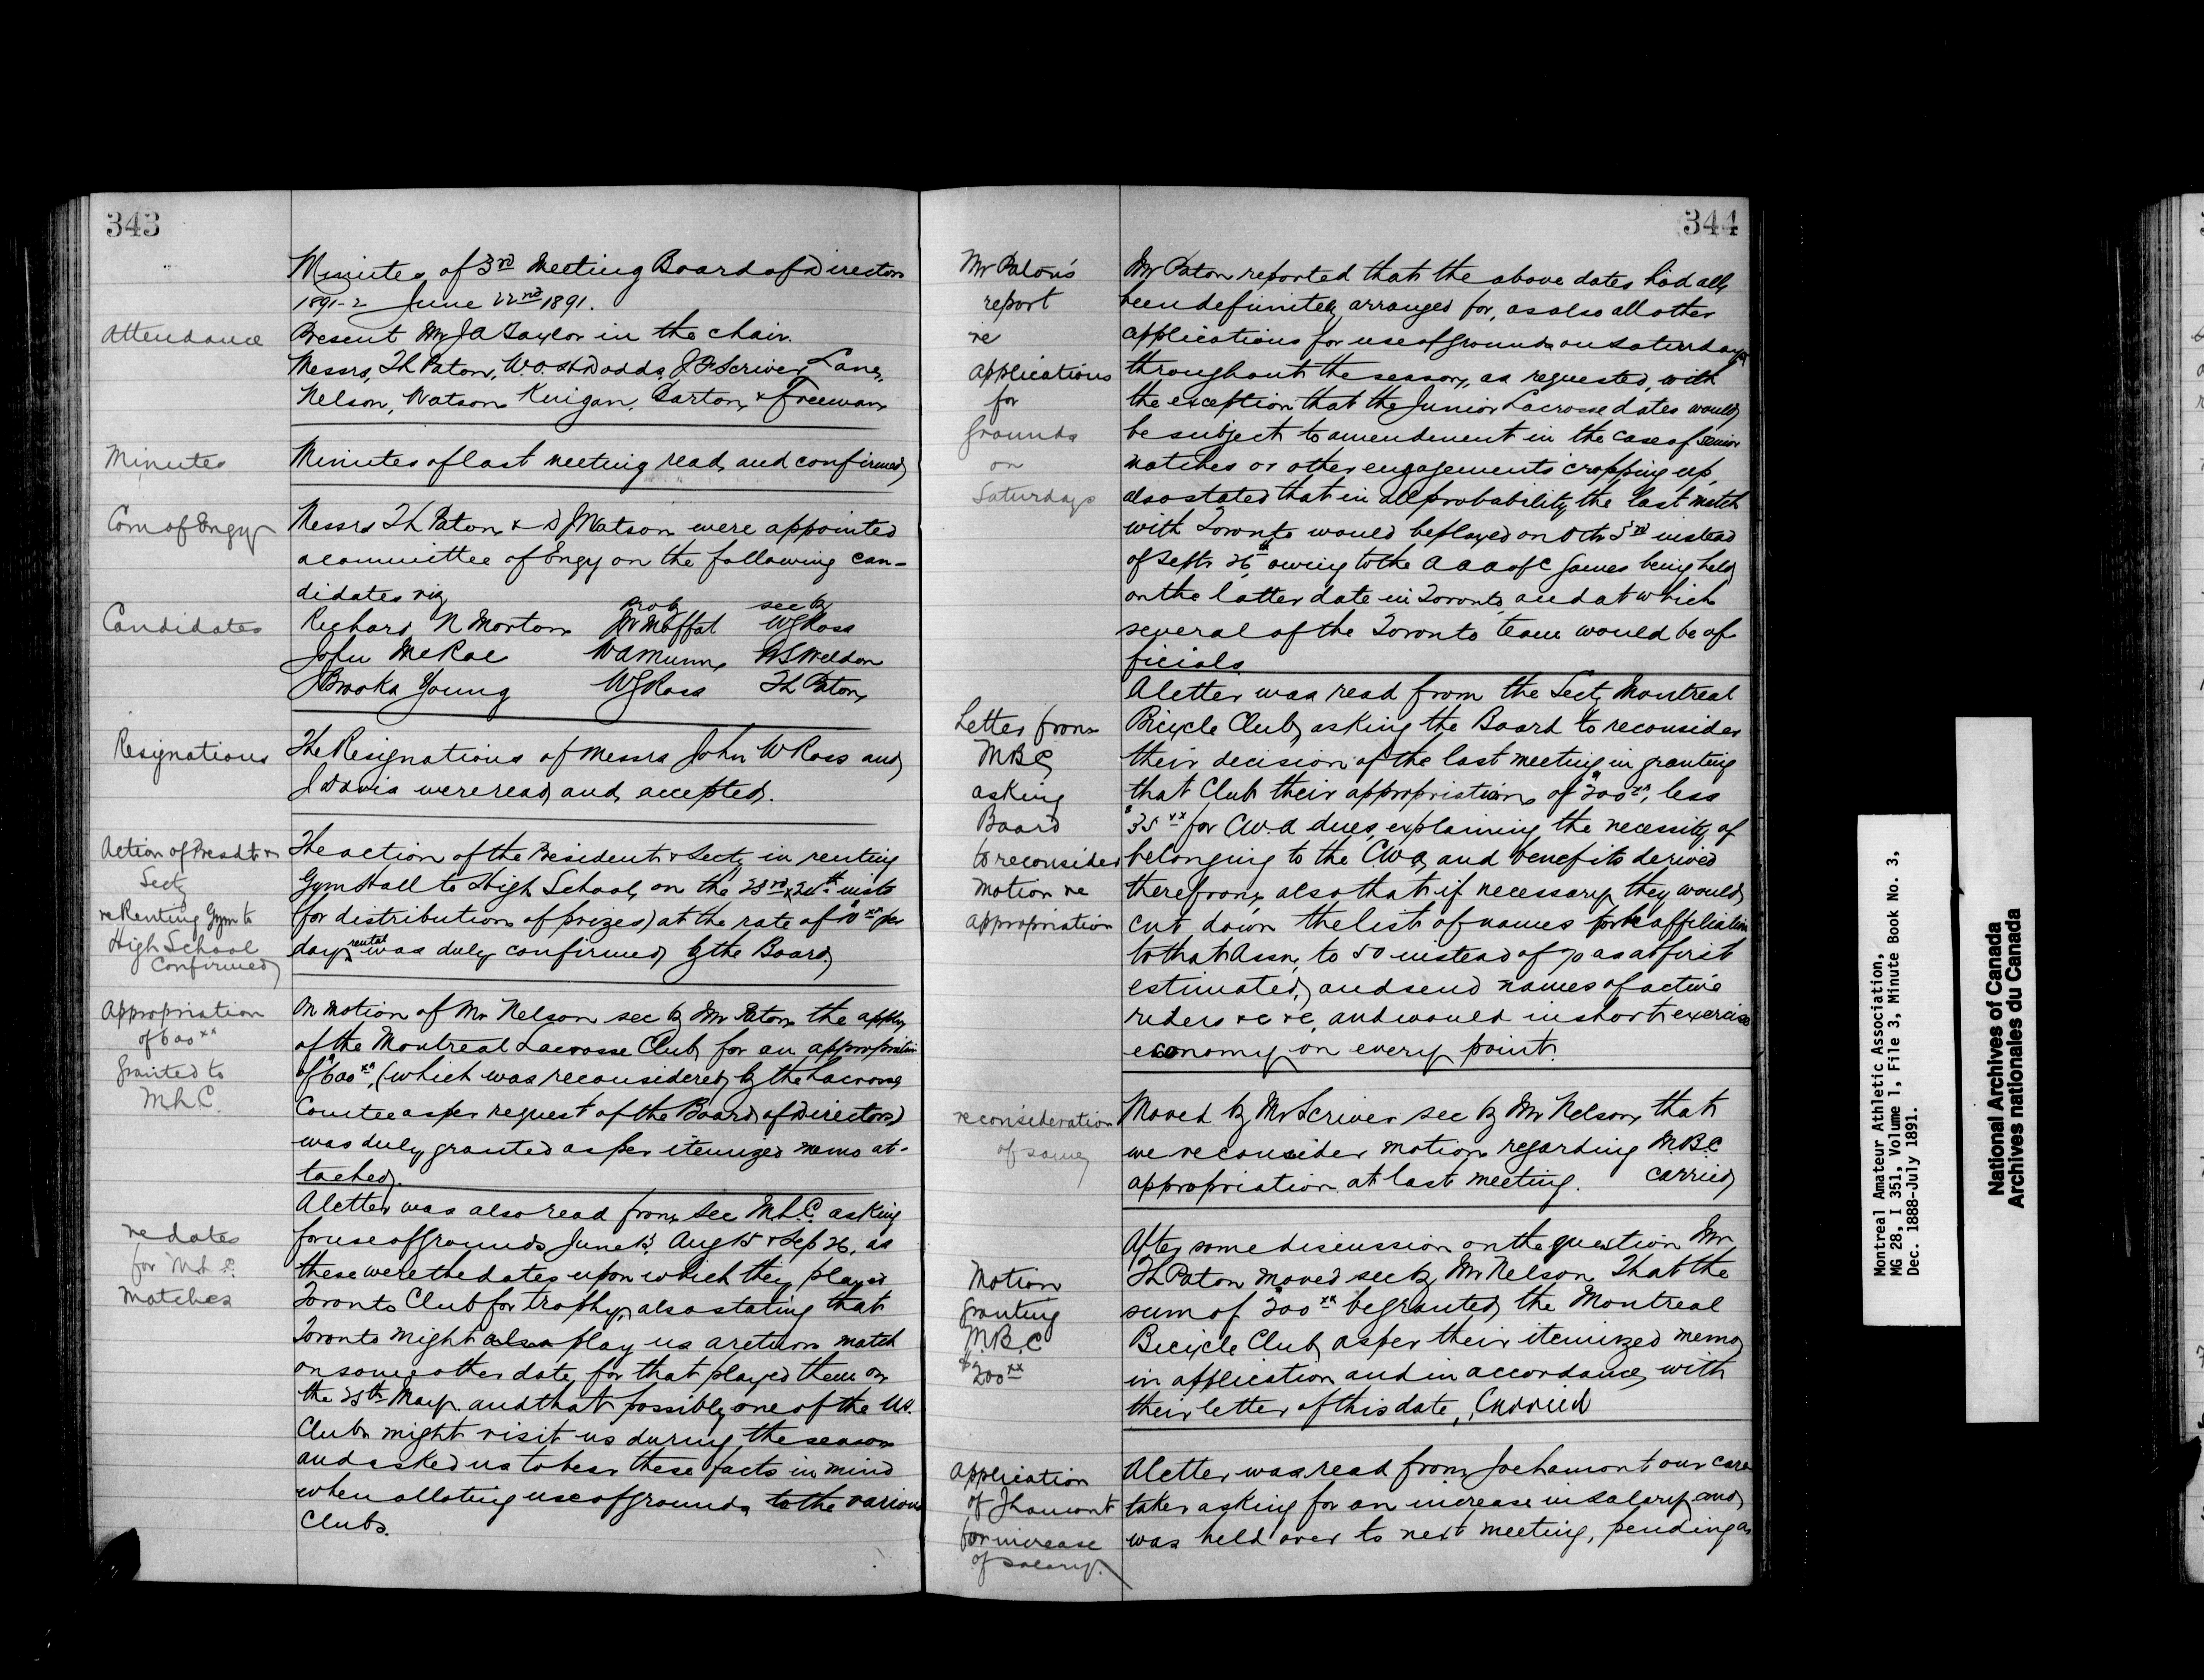 343
Minutes of 3rd Meeting Board of Directors
1891-2 June 22nd 1891.
Attendance
Present Mr J A Taylor in the chair.
Messrs, Th Paton, W. H. Dodds, J P Scriver, Lane,
Nelson, Watson Kinigan, Barton, & Freeman
Minutes
Minutes of last meeting read, and confirmed
Com of Enqy
Messrs Th Paton & D J Watson were appointed
a committee of Enqy on the following can-
didates viz
prop by sec by
Candidates
Richard N Morton J W Moffat W G Ross
John McRae W A Munn W S Weldon
J Brooks Young W G Ross Th Paton
Resignations
The Resignations of Messrs John W Ross and
J Davis were read, and, accepted.
Action of Presdt &
Secty
re Renting Gym to
High School
Confirmed
The action of the President & Secty in renting
Gym Hall to High School, on the 23rd & 24th inst
(for distribution of prizes) at the rate of $10 xx per
day, rental was duly confirmed by the Board,
Appropriation
of 600 xx
granted to
M.L.C.
On motion of Mr Nelson sec by Mr Paton, the appln
of the Montreal Lacrosse Club, for an appropriation
of $600 xx, (which was reconsidered, by the Lacrosse
Comtee as per request of the Board, of Directors)
was duly granted as per itemized memo at-
tached,.
re dates
for M.L.C.
Matches
A letter was also read from, sec M.L.C. asking
for use of grounds, June 13, Aug 15 & Sep 26, as
these were the dates upon which they played
Toronto Club for trophy, also stating that
Toronto might also play us a return match
on some other date, for that played them on
the 25th May. and that possibly one of the U.S.
Clubs might visit us during the season
and asked us to bear these facts in mind
when alloting use of grounds, to the various
Clubs.
344
Mr Paton's
report
re
applications
for
grounds
on
Saturdays
Mr Paton reported that the above dates had all
been definitely arranged for, as also all other
applications for use of grounds on Saturdays
throughout the season, as requested, with
the exception that the Junior Lacrosse dates would
be subject to amendment in the case of senior
matches or other engagements cropping up,
also stated that in all probability the last match
with Toronto would be played on Oct 3rd instead
of Sept 26th, owing to the A A A of C Games being held
on the latter date in Toronto, and at which
several of the Toronto team would be of-
ficials
Letter from
MBC
asking
Board
to reconsider
Motion re
appropriation
A letter was read from the Secty Montreal
Bicycle Club, asking the Board to reconsider
their decision of the last meeting in granting
that Club their appropriation, of $200 xx, less
$35 xx for C.W.A dues, explaining the necessity of
belonging to the C.W.A, and benefits derived
therefrom, also that if necessary they would
cut down the list of names for the affiliation
to that Assn, to 50 instead of 70 as at first
estimated, and send names of active
riders &c &c, and would in short exercise
economy on every point.
reconsideration
of same
Moved by Mr Scriver sec by Mr Nelson, that
we reconsider motion regarding M.B.C
appropriation at last meeting. Carried
Motion
granting
M.B.C
$200 xx
After some discussion on the question Mr
Th Paton moved sec by Mr Nelson, That the
sum of $200 xx be granted, the Montreal
Bicycle Club, as per their itemized memo
in application and in accordance, with
their letter of this date, Carried
Application
of J Lamont
for increase
of salary.
A letter was read from Joe Lamont our care
taker asking for an increase in salary, and,
was held over to next meeting, pending a
Montreal Amateur Athletic Association,
MG 28, I 351, Volume 1, File 3, Minute Book No. 3,
Dec. 1888-July 1891.
National Archives of Canada
Archives nationales du Canada